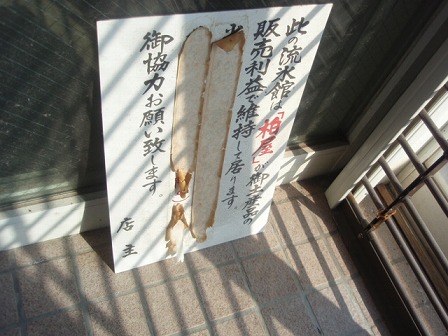 此の流氷館は「柏屋」が御土産品の
販売利益で維持して居ります。
御協力お願い致します。
店主